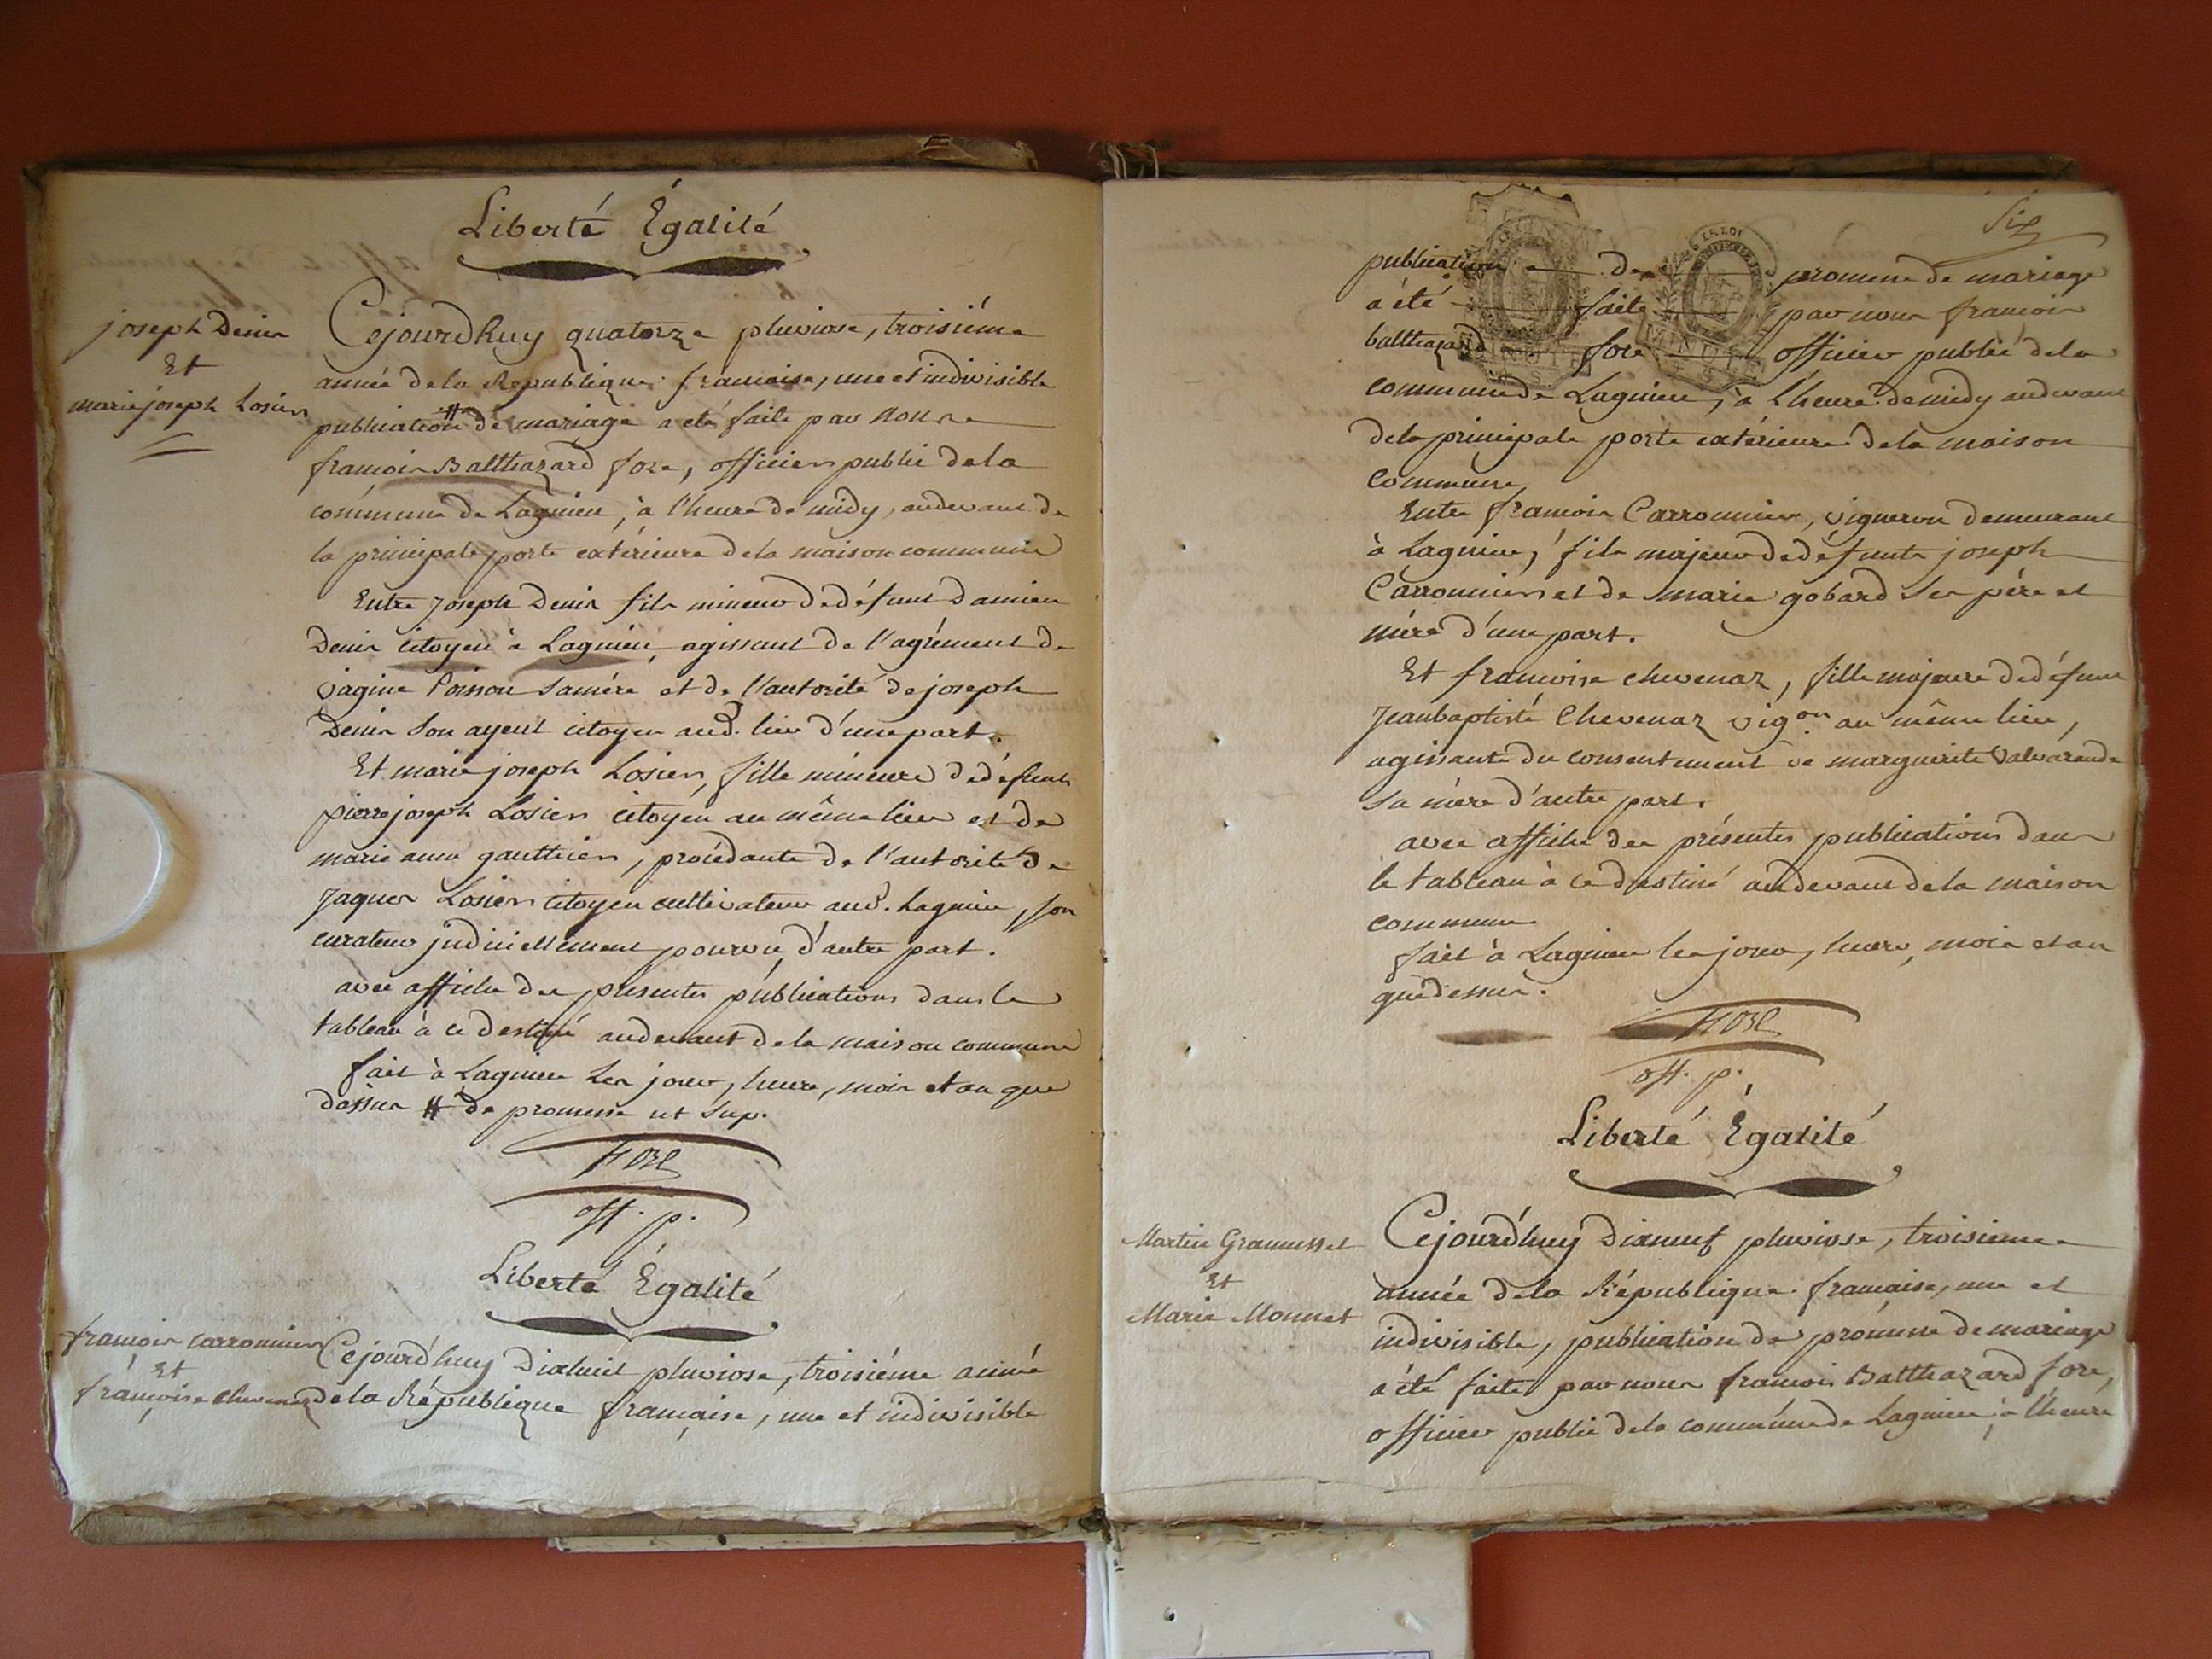 Liberté Égalité
joseph Denis
Et
marie joseph Losier
Cejourdhuy quatorze pluviose, troisiéme
année dela Republique francaise, une et indivisible
publication # de mariage a été faite par nous
francois Balthazard fore, officier public dela
commune de Lagnieu, à l'heure de midy, audevant de
la principale porte extérieure dela maison commune
Entre joseph Denis fils mineur de défunt damien
Denis citoyen à Lagnieu, agissant de l'agrément de
vagine Poisson sa mére et de l'autorité de joseph
Denis son ayeul citoyen aud. lieu d'une part.
Et marie joseph Losier, fille mineure de défunt
pierre joseph Losier citoyen au même lieu et de
marie anne gauthier, procédante de l'autorité de
jaques Losier citoyen cultivateur aud. Lagnieu, son
curateur judiciellement pourvu, d'autre part.
avec affiche des présentes publications dans le
tableau à ce destiné audevant de la maison commune
fait à Lagnieu les jour, heure, mois et an que
dessus # de promesse ut sup.
fore
off. p.
Liberté Égalité
francois carronnier
Et
françoise chevenaz
Cejourd'huy dixhuit pluviose, troisiéme année
de la République française, une et indivisible
Six
publication de promesse de mariage
a été faite par nous francois
balthazard fore officier public dela
commune de Lagnieu, à l'heure de midy audevant
dela principale porte extérieure dela maison
commune
Entre francois Carronnier, vigneron demeurant
à Lagnieu, fils majeur de défunts joseph
Carronnier et de marie gobard ses pére et
mére d'une part.
Et francoise chevenaz, fille majeure de défunt
jeanbaptiste Chevenaz vigon au même lieu,
agissante du consentement de marguerite valvarande
sa mère d'autre part.
avec affiche des présentes publications dans
le tableau à ce destiné audevant dela maison
commune
fait à Lagnieu les jour, heure, mois et an
que dessus.
fore
off. p.
Liberté Égalité
Martin Gramusset
Et
Marie Monnet
Cejourd'huy dixneuf pluviose, troisieme
année dela République francaise, une et
indivisible, publication de promesse de mariage
a été faite par nous francois Balthazard fore,
officier public dela commune de Lagnieu, à l'heure